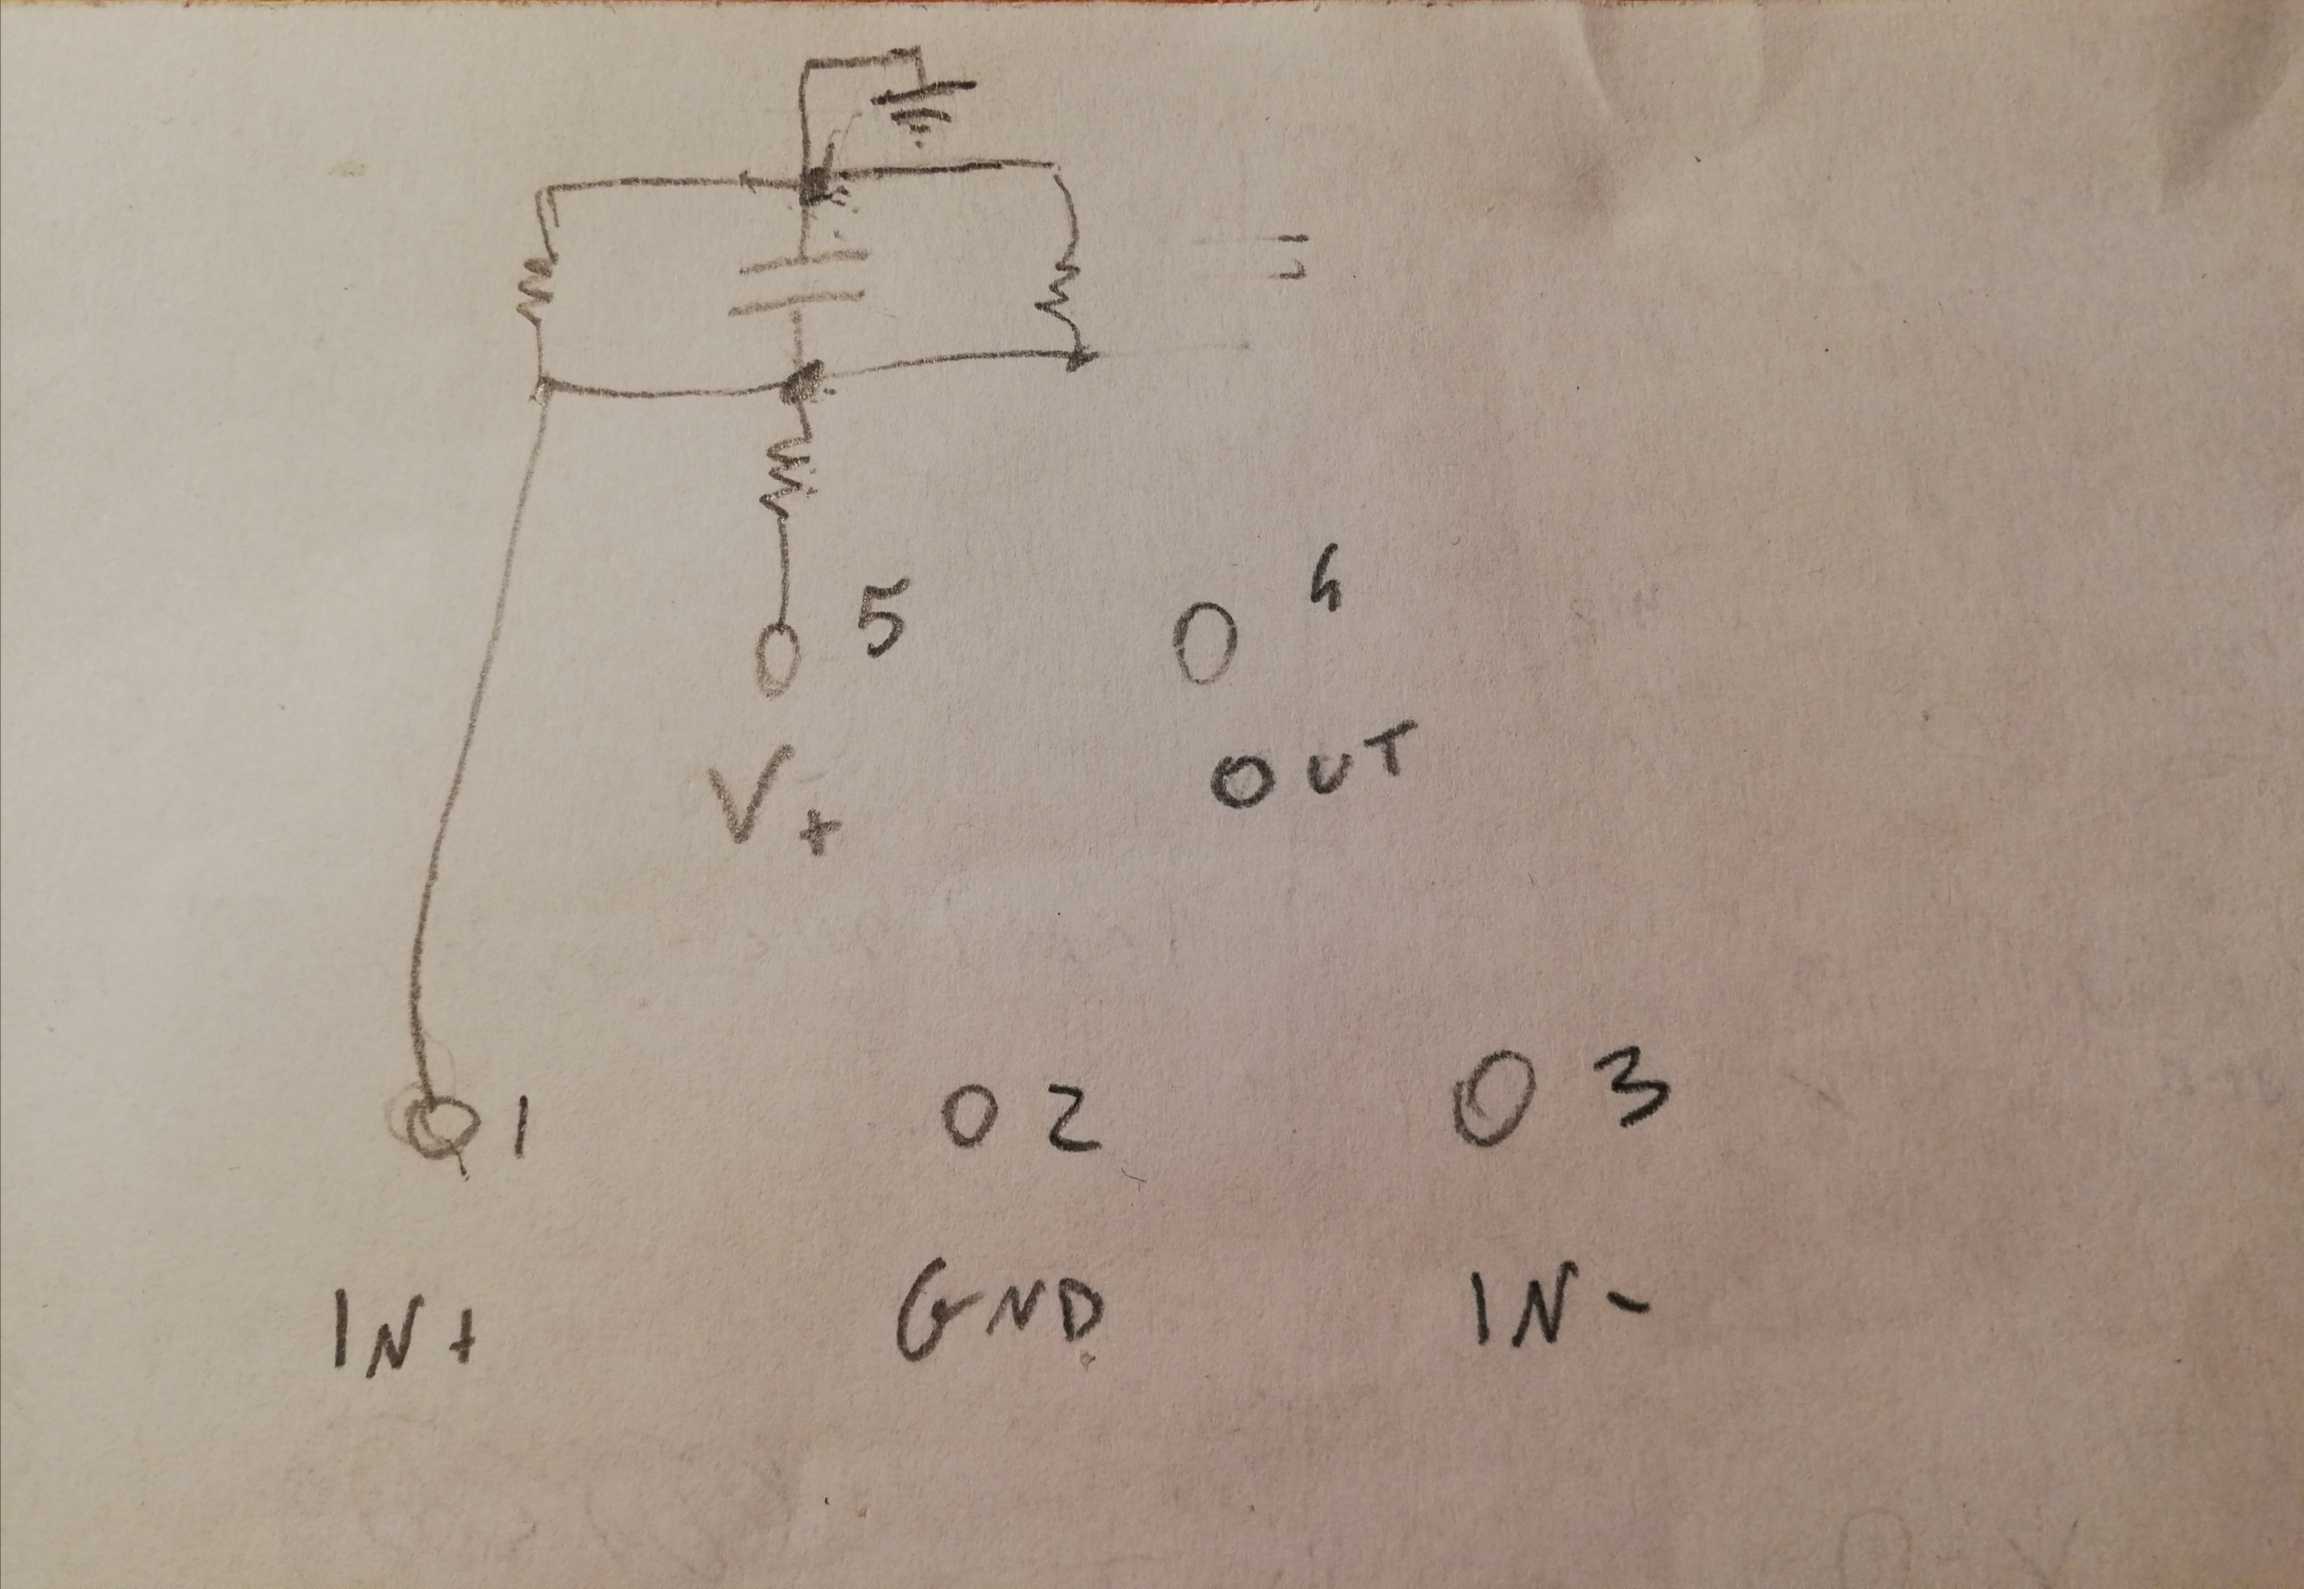 5 4
V+ OUT
1 2 3
IN+ GND IN-